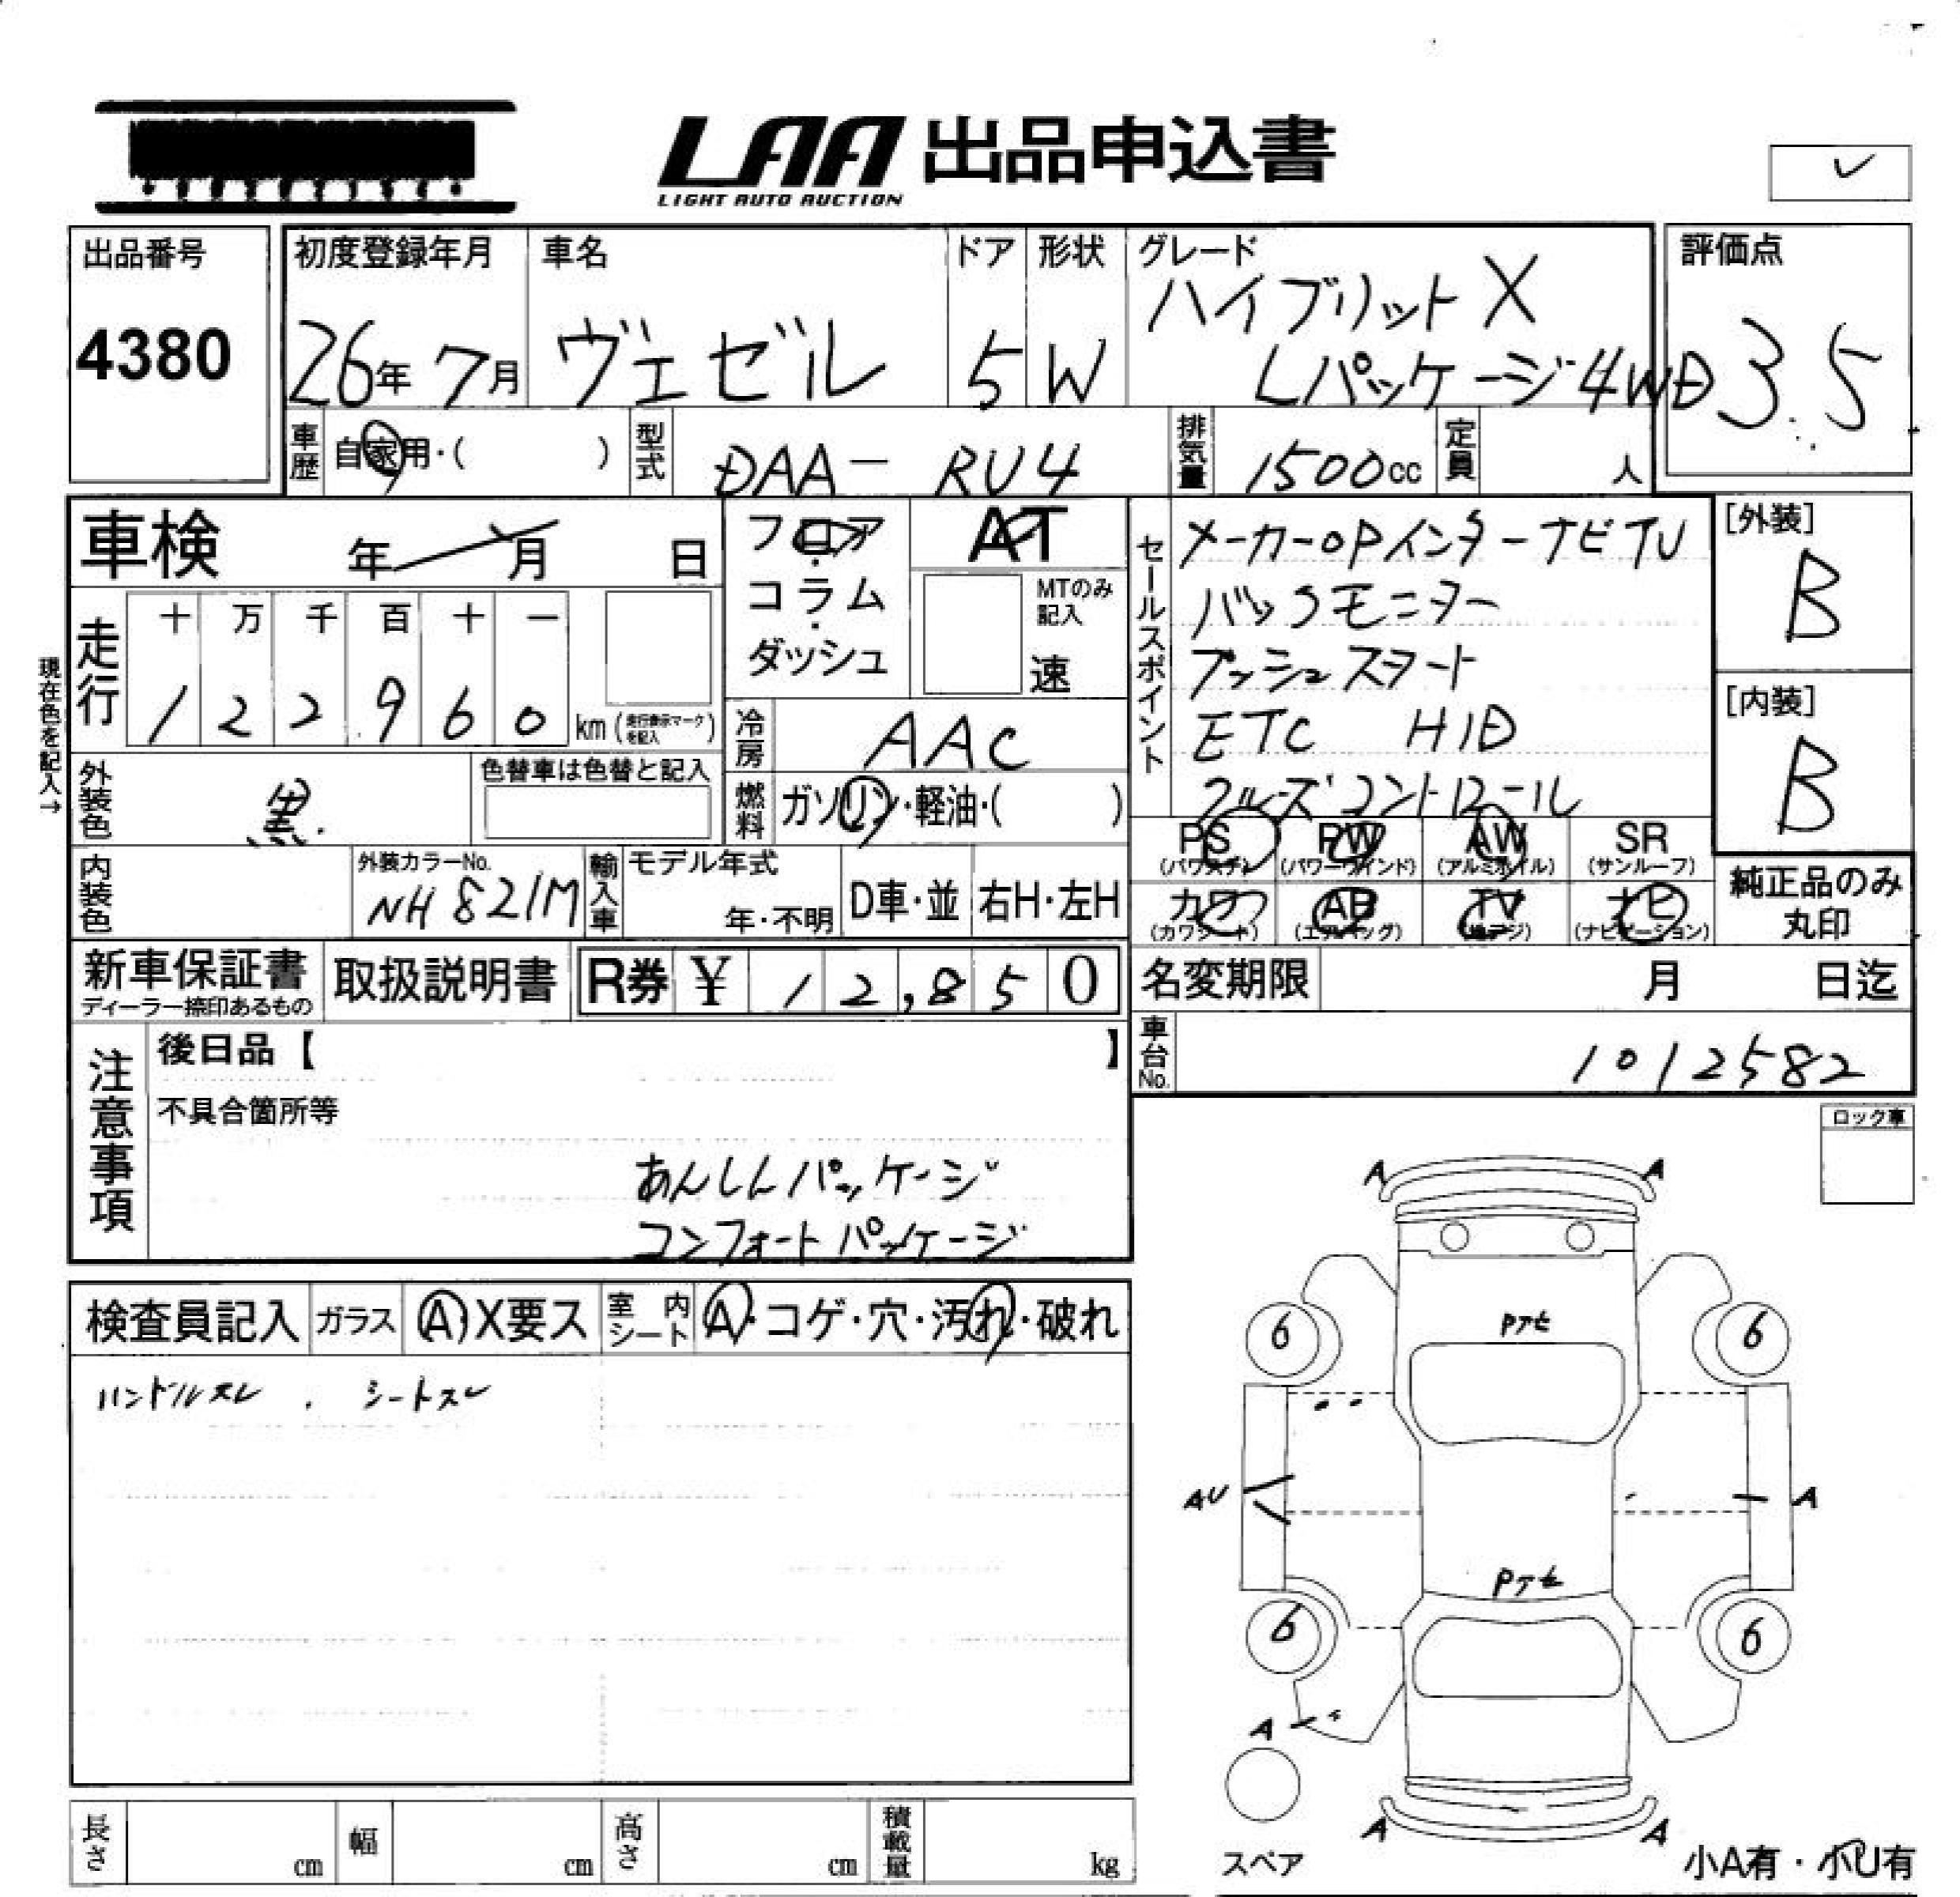 LAA 出品申込書
LIGHT AUTO AUCTION
出品番号
4380
初度登録年月
26年 7月
車名
ヴェゼル
ドア
5
形状
W
グレード
ハイブリット X
Lパッケージ 4WD
評価点
3.5
車歴
自家用・( )
型式
DAA- RU4
排気量
1500cc
定員
人
車検 年 月 日
フロア
・
コラム
・
ダッシュ
AT
MTのみ
記入
速
セールスポイント
メーカーOPインターナビTV
バックモニター
プッシュスタート
ETC HID
クルーズコントロール
[外装]
B
[内装]
B
現在色を記入→
走行
十 万 千 百 十 一
1 2 2 9 6 0 km (走行表示マークを記入)
冷房
AAC
外装色
黒
色替車は色替と記入
燃料
ガソリン・軽油・( )
PS (パワステ)
PW (パワーウインド)
AW (アルミホイル)
SR (サンルーフ)
カワ (カワシート)
AB (エアバッグ)
TV (地デジ)
ナビ (ナビゲーション)
純正品のみ
丸印
内装色
外装カラーNo.
NH821M
輸入車
モデル年式
年・不明
D車・並
右H・左H
新車保証書
ディーラー捺印あるもの
取扱説明書
R券 ¥ 12,850
名変期限 月 日迄
車台No.
1012582
注意事項
後日品【 】
不具合箇所等
あんしんパッケージ
コンフォートパッケージ
ロック車
検査員記入
ガラス
A・X要ス
室内シート
A・コゲ・穴・汚れ・破れ
ハンドルスレ . シートスレ
A A
6 Pアセ 6
AU A
Pアセ
6 6
A
A A
スペア
小A有・小U有
長さ cm
幅 cm
高さ cm
積載量 kg